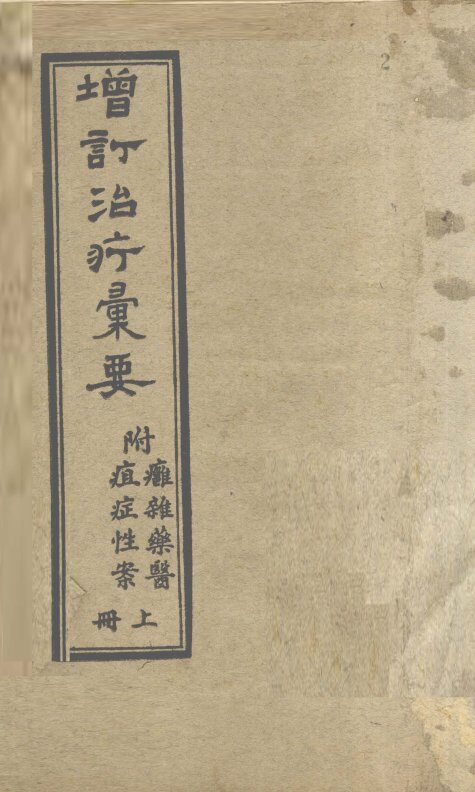 增訂治疔彙要
附
癰雜藥醫
疽症性案
上冊
2